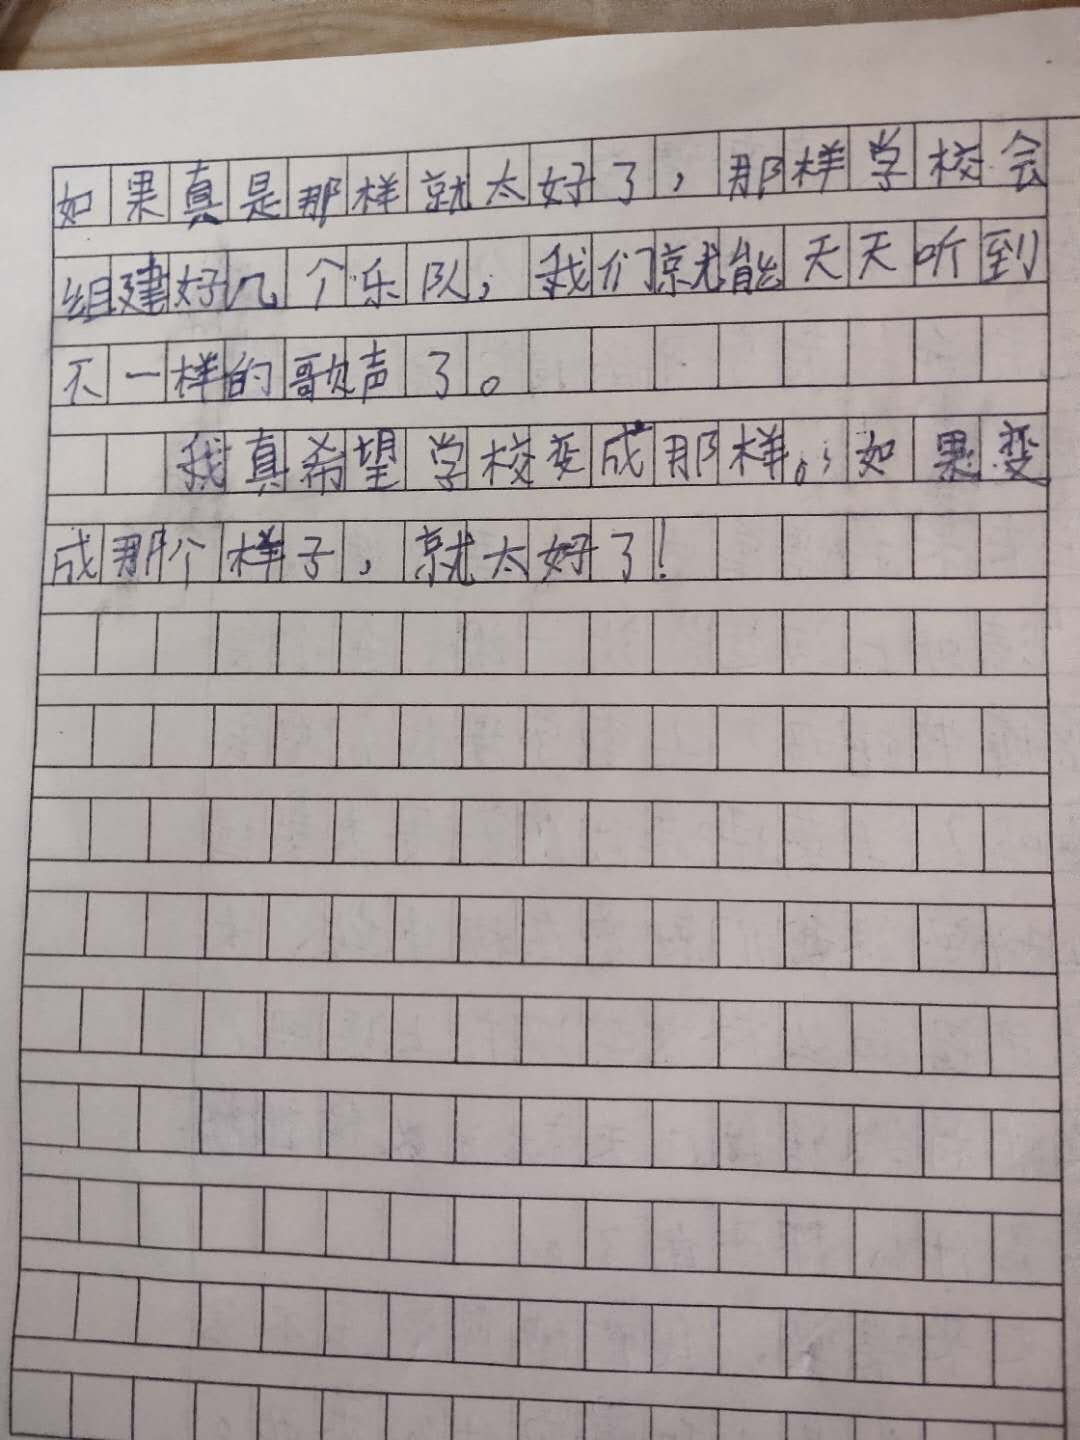 如果真是那样就太好了，那样学校会
组建好几个乐队，我们就能天天听到
不一样的歌声了。
我真希望学校变成那样。如果变
成那个样子，就太好了！